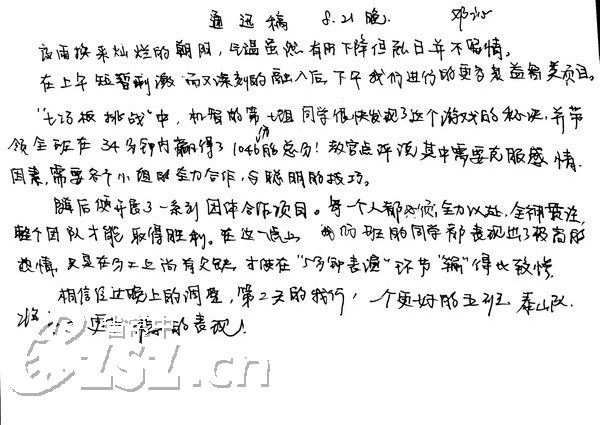 通迅稿 8.21晚 邓
夜雨换来灿烂的朝阳,气温虽然有所下降但烈日并不留情。
在上午短暂刺激而又深刻的融入后,下午我们进行的更多是益智类项目。
"七巧板挑战"中,机智的第七组同学很快发现了这个游戏的秘诀,并带
领全班在34分钟内赢得了1046分的总分!教官点评说,其中需要克服感情
因素,需要各个小组的全力合作,与聪明的技巧。
随后便开展了一系列团体合作项目。每一个人都必须全力以赴,全神贯注,
整个团队才能取得胜利。在这一点上,我们班的同学都表现出了极高的
热情,只是在分工上尚有欠缺,才使在"5分钟表演"环节"输"得比较惨。
相信经过晚上的调整,第二天的我们,一个更好的五班泰山队
将 更 的表现!
智高中
ZSZ.cn